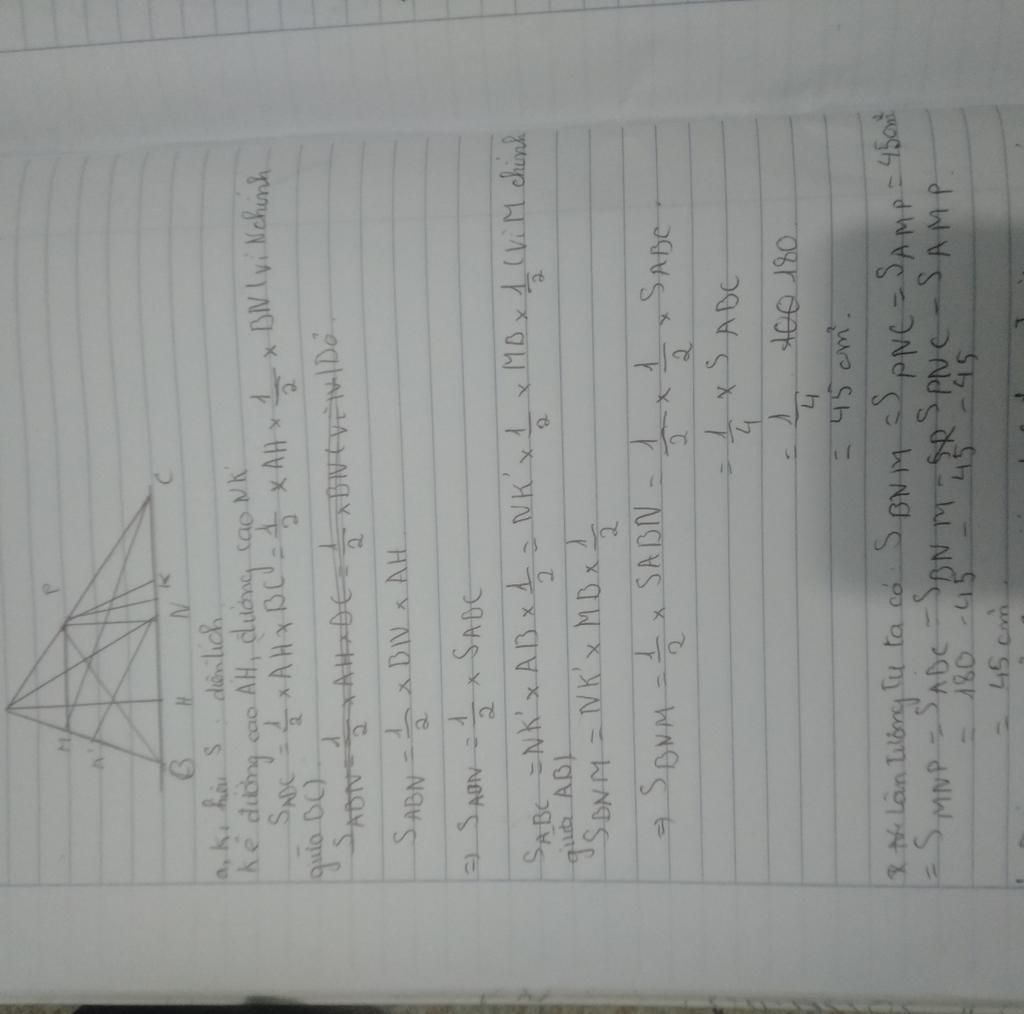 P
M
K'
B
H
N
K
C
a, Kí hiệu S : diện tích
Kẻ đường cao AH, đường cao NK'
S ABC = 1/2 × AH × BC = 1/2 × AH × 1/2 × BN (vì N chính
giữa BC)
S ABN = 1/2 × AH × BC = 1/2 × BN (vì N) Do
S ABN = 1/2 × BN × AH
=> S ABN = 1/2 × S ABC
S ABC = NK' × AB × 1/2 = NK' × 1/2 × MB × 1/2 (Vì M chính
giữa AB)
S BNM = NK' × MB × 1/2
=> S BNM = 1/2 × S ABN = 1/2 × 1/2 × S ABC.
= 1/4 × S ABC
= 1/4 100 180
= 45 cm².
Làm tương tự ta có S BNM = S PNC = S AMP = 45cm²
= S MNP = S ABC - S BNM - S PNC - S AMP.
= 180 - 45 - 45 - 45
= 45 cm².